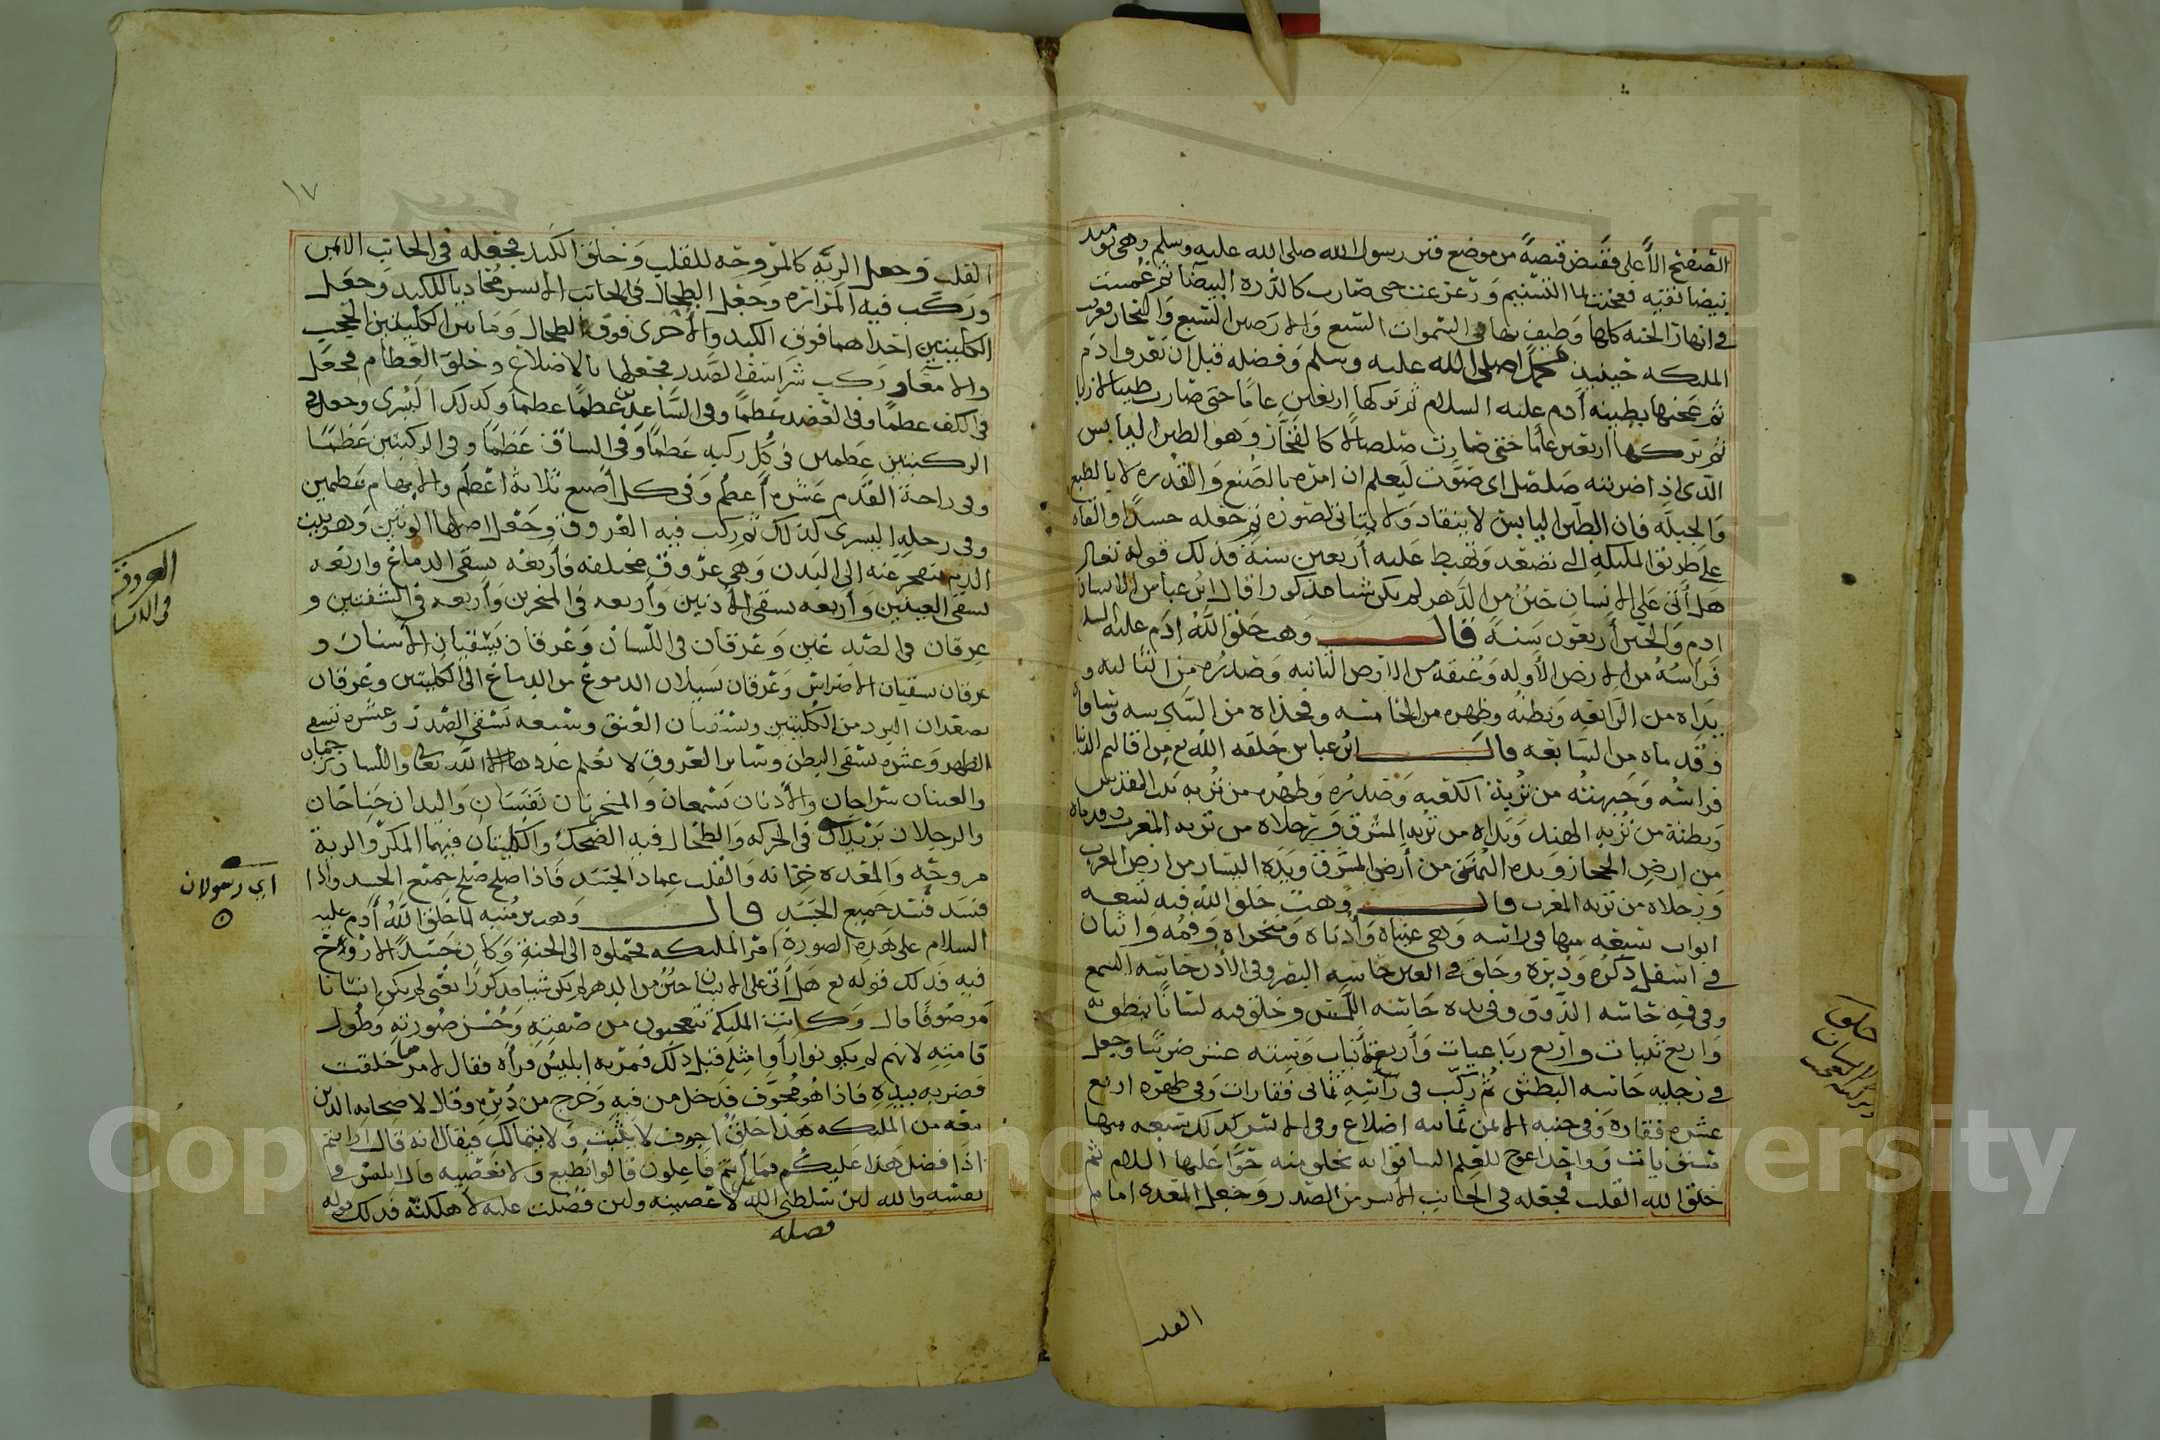 الصفيح الأعلى فقبض قبضة من موضع قبر رسول الله صلى الله عليه وسلم وهي يوميذ
بيضا نقيه فعجنت بما التسنيم ورعرعت حتى صارت كالدره البيضا ثم غمست
في انهار الجنه كلها وطيف بها في السموات السبع والارضين السبع والبحار فعرفت
الملئكه حينيذ محمدا صلى الله عليه وسلم وفضله قبل ان تعرف ادم
ثم عجنها بطينه أدم عليه السلام ثم تركها اربعين عاما حتى صارت طينا لازبا
ثم تركها اربعين عاما حتى صارت صلصالا كالفخار وهو الطين اليابس
الذي اذا ضربته صلصل اي صوت ليعلم ان امره بالصنع والقدره لا بالطبع
والجبله فان الطين اليابس لا ينقاد ولا يتاتى لصوره ثم جعله جسدا والقاه
على طريق المليكه التي تصعد وتهبط عليه أربعين سنة فذلك قوله تعالى
هل أتى على الإنسان حين من الدهر لم يكن شيا مذكورا قال ابن عباس الانسان
ادم والحين أربعون سنة قال وهب خلق الله ادم عليه السلم
فراسه من الارض الأوله وعنقه من الارض الثانيه وصدره من الثالثه و
يداه من الرابعه وبطنه وظهره من الخامسه وفخذاه من السادسه وساقاه
وقدماه من السابعه قال ابن عباس خلقه الله تع من اقاليم الدنيا
فراسه وجبهته من تربة الكعبه وصدره وظهره من تربه بيت المقدس
وبطنه من تربه الهند ويداه من تربه المشرق ورجلاه من تربه المغرب وقدماه
من ارض الحجاز ويده اليمنى من أرض المشرق ويده اليسار من ارض المغرب
ورجلاه من تربه المغرب قال وهب خلق الله فيه تسعه
ابواب سبعه منها في راسه وهي عيناه وأذناه ومنخراه وفمه واثنان
في اسفل ذكره ودبره وخلق في العين حاسه البصر وفي الأذن حاسه السمع
وفي فيه حاسه الذوق وفي يده حاسه اللمس وخلق فيه لسانا ينطق به
واربع ثنيات واربع رباعيات وأربعة أنياب وسته عشر ضرسا وجعل
في رجليه حاسه البطش ثم ركب في رأسه ثماني فقارات وفي ظهره اربع
عشره فقاره وفي جنبه الايمن ثمانيه اضلاع وفي الايسر كذلك تسعه منها
وواحد اعوج للعلم السابق انه يخلق منه حوا عليها السلام ثم
خلق الله القلب فجعله في الجانب الايسر من الصدر وجعل المعده امام
القلب
خلق
١٧
القلب وجعل الريه كالمروحه للقلب وخلق الكبد فجعله في الجانب الايمن
وركب فيه المراره وجعل الطحال في الجانب الايسر محاذيا للكبد وجعل
الكليتين احداهما فوق الكبد والأخرى فوق الطحال وما بين الكليتين الحجب
والامعا وركب شراسف الصدر فجعلها بالاضلاع وخلق العظام فجعل
في الكف عظما وفي العضد عظما وفي الساعدين عظما عظما وكذلك اليسرى وجعل في
الركبتين عظمين في كل ركبه عظما وفي الساق عظما وفي الوركين عظما
وفي راحة القدم عشره أعظم وفي كل أصبع ثلاثة اعظم والابهام عظمين
وفي رجله اليسرى كذلك ثم ركب فيه العروق وجعل اصلها الوتين وهو بيت
الدم ينفجر عنه الى البدن وهي عروق مختلفه فأربعه يسقى الدماغ واربعه
تسقى العينين وأربعه تسقى الأذنين وأربعه في المنخرين وأربعه في الشفتين و
عرقان في الصدغين وعرقان في اللسان وعرقان يسقيان الاسنان و
عرقان يسقيان الاضراس وعرقان يسيلان الدموع من الدماغ الى الكليتين وعرقان
يصعدان البرد من الكليتين ويسقيان العنق وسبعه تسقى الصدر وعشره تسقي
الظهر وعشره تسقى البطن وساير العروق لا يعلم عددها الا الله تعالى واللسان ترجمان
والعينان سراجان والأذنان تسمعان والمنخران نفسان واليدان جناحان
والرجلان بريدان في الحركه والطحال فيه الضحك والكليتان فيهما المكر والرية
مروحه والمعده خزانه والقلب عماد الجسد فاذا صلح صلح جميع الجسد واذا
فسد فسد جميع الجسد قال وهب بن منبه لما خلق الله أدم عليه
السلام على هذه الصورة امر المليكه فحملوه الى الجنة وكان جسدا لا روح
فيه فذلك قوله تع هل أتى على الانسان حين من الدهر لم يكن شيا مذكورا يعني لم يكن انسانا
موصوفا قال وكانت المليكة تتعجبون من صفته وحسن صورته وطول
قامته لانهم لم يكونوا رأوا مثله قبل ذلك فمر به ابليس فرأه فقال لامر ما خلقت
فضربه بيده فاذا هو مجوف فدخل من فيه وخرج من دبره وقال لاصحابه الذين
معه من المليكه هذا خلق اجوف لا يثبت ولا يتمالك فيقال انه قال أرايتم
اذا فضل هذا عليكم فما أنتم فاعلون قالوا نطيع ولا نعصيه قال ابليس في
نفسه والله لين سلطني الله عليه لا عصينه ولين فضلت عليه لأهلكنه فذلك قوله
العروق
اي رسولان